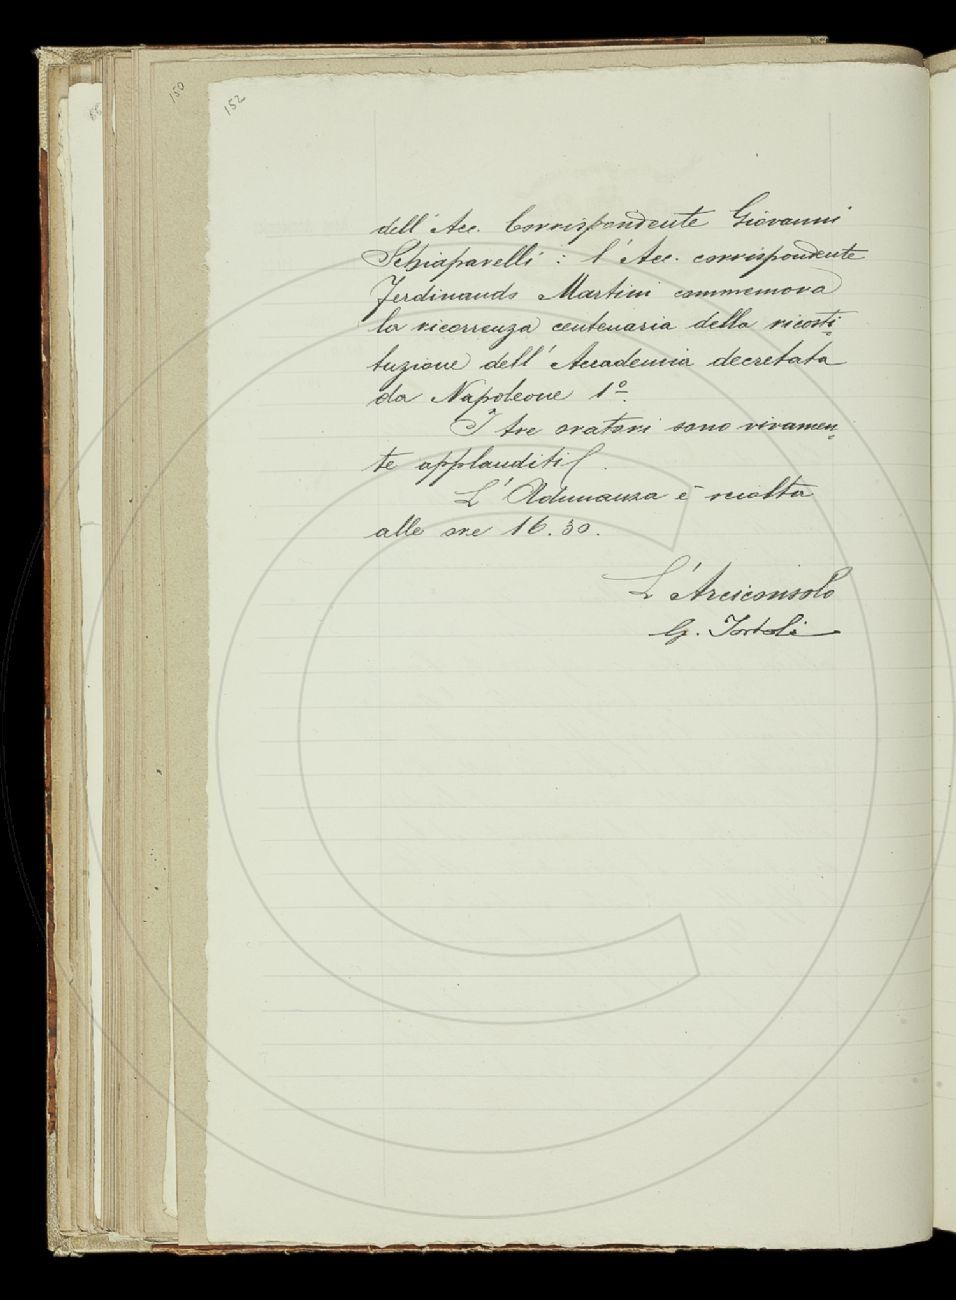 150
152
dell' Acc. Corrispondente Giovanni
Schiaparelli : l' Acc. corrispondente
Ferdinando Martini commemora
la ricorrenza centenaria della ricosti-
tuzione dell' Accademia decretata
da Napoleone 1º.
I tre oratori sono vivamen-
te applauditi.
L' Adunanza è sciolta
alle ore 16.30.
L' Arciconsolo
G. Tortoli